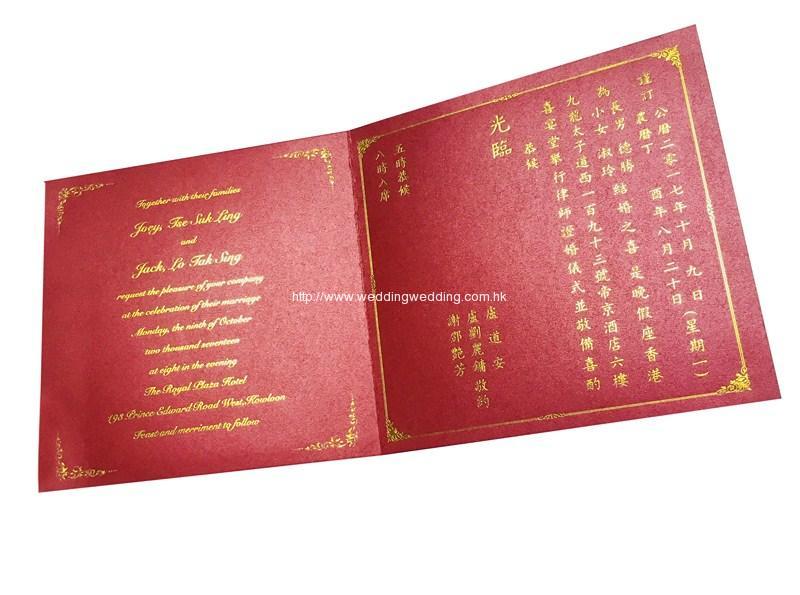 Together with their families
Joey, Tse Suk Ling
and
Jack, Lo Tak Sing
request the pleasure of your company
at the celebration of their marriage
Monday, the ninth of October
two thousand seventeen
at eight in the evening
The Royal Plaza Hotel
193 Prince Edward Road West, Kowloon
Feast and merriment to follow
謹訂
公曆二零一七年十月九日(星期一)
農曆丁酉年八月二十日
為
長男德勝
小女淑玲
結婚之喜是晚假座香港
九龍太子道西一百九十三號帝京酒店六樓
喜宴堂舉行律師證婚儀式並敬備喜酌
恭候
光臨
盧道安
盧劉麗鏞
謝鄧艷芳
敬約
五時恭候
八時入席
http://www.weddingwedding.com.hk